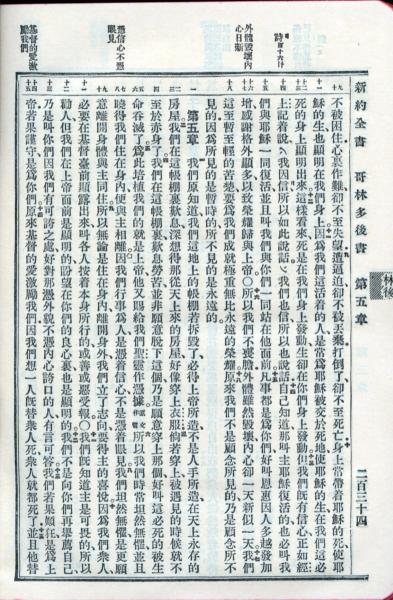 新約全書 哥林多後書 第五章 二百三十四
林後
詩百十六廿
外體毀壞內心日新
憑信心不憑眼見
基督的愛激勵我們
不被困住心裏作難卻不至失望遭逼迫卻不被丟棄打倒了卻不至死亡身上常帶着耶穌的死使耶
穌的生也顯明在我們身上因爲我們這活着的人是常爲耶穌被交於死地使耶穌的生在我們這必
死的身上顯明出來這樣看來死是在我們身上發動生卻在你們身上發動但我們既有信心正如經
上記着說我因信所以如此說話我們也信所以也說話自己知道那叫主耶穌復活的也必叫我
們與耶穌一同復活並且叫我們與你們一同站在他面前凡事都是爲你們好叫恩惠因人多越發加
增感謝格外顯多以致榮耀歸與上帝○所以我們不喪膽外體雖然毀壞內心卻一天新似一天我們
這至暫至輕的苦楚要爲我們成就極重無比永遠的榮耀原來我們不是顧念所見的乃是顧念所不
見的因爲所見的是暫時的所不見的是永遠的
第五章 我們原知道我們這地上的帳棚若拆毀了必得上帝所造不是人手所造在天上永存的
房屋我們在這帳棚裏歎息深想得那從天上來的房屋好像穿上衣服倘若穿上被遇見的時候就不
至於赤身了我們在這帳棚裏歎息勞苦並非願意脫下這個乃是願意穿上那個好叫這必死的被生
命吞滅了爲此培植我們的就是上帝他又賜給我們聖靈作憑據所以我們時常坦然無懼並且
曉得我們住在身內便與主相離因我們行事爲人是憑着信心不是憑着眼見我們坦然無懼是更願
意離開身體與主同住所以無論是住在身內離開身外我們立了志向要得主的喜悅因爲我們衆人
必要在基督臺前顯露出來叫各人按着本身所行的或善或惡受報○我們既知道主是可畏的所以
勸人但我們在上帝面前是顯明的盼望在你們的良心裏也是顯明的我們不是向你們再舉薦自己
乃是叫你們因我們有可誇之處好對那憑外貌不憑內心誇口的人有言可答我們若果顛狂是爲上
帝若果謹守是爲你們原來基督的愛激勵我們因我們想一人既替衆人死衆人就都死了並且他替